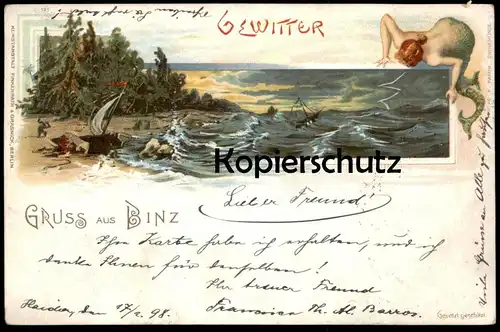 GEWITTER
Kopierschutz
Lieber Freund!
GRUSS AUS BINZ
Ihre Karte habe ich erhalten, und ich
danke Ihnen für denselben.
Ihr treuer Freund
Th. Al. Barros.
den 17/2 98.
Viele Grüsse an Alle
Gesetzl. geschützt.